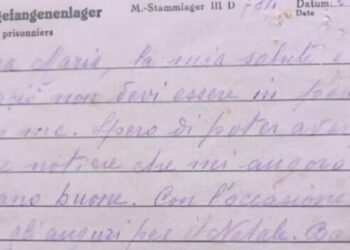 gefangenenlager M.-Stammlager III D Datum:
prisonniers Date
Maria, la mia salute e
non devi essere in pen
me. Spero di poter aver
notizie che mi auguro
buone. Con l'occasione
auguri per il Natale. Ba